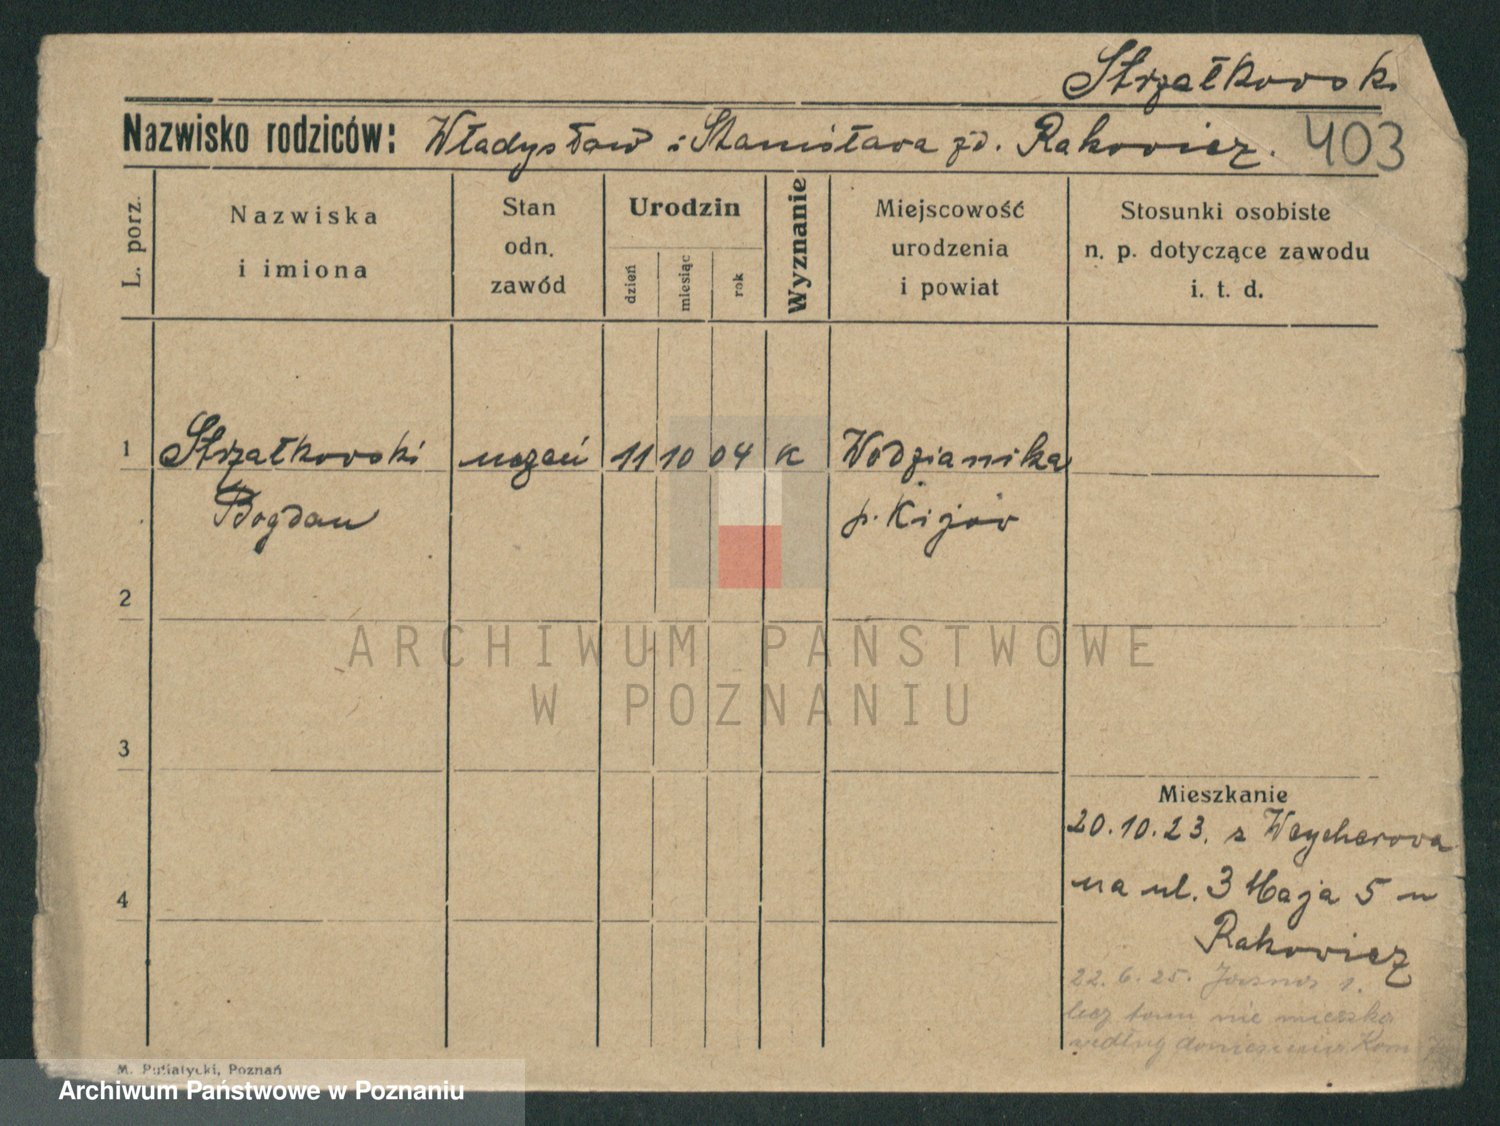 Strzałkowski
Nazwisko rodziców: Władysław i Stanisława zd. Rakowicz. 403
L. porz.
Nazwiska
i imiona
Stan
odn.
zawód
Urodzin
dzień
miesiąc
rok
Wyznanie
Miejscowość
urodzenia
i powiat
Stosunki osobiste
n. p. dotyczące zawodu
i. t. d.
1 Strzałkowski uczeń 11 10 04 K Wodzianika
Bogdan p. Kijów
2
ARCHIWUM PAŃSTWOWE
W POZNANIU
3
Mieszkanie
20.10.23. z Weycherowa
4
na ul. 3 Maja 5 u
Rakowicz
22.6.25. Jasna 1.
lecz tam nie mieszka
według doniesienia Kom
M. Putiatycki, Poznań
Archiwum Państwowe w Poznaniu